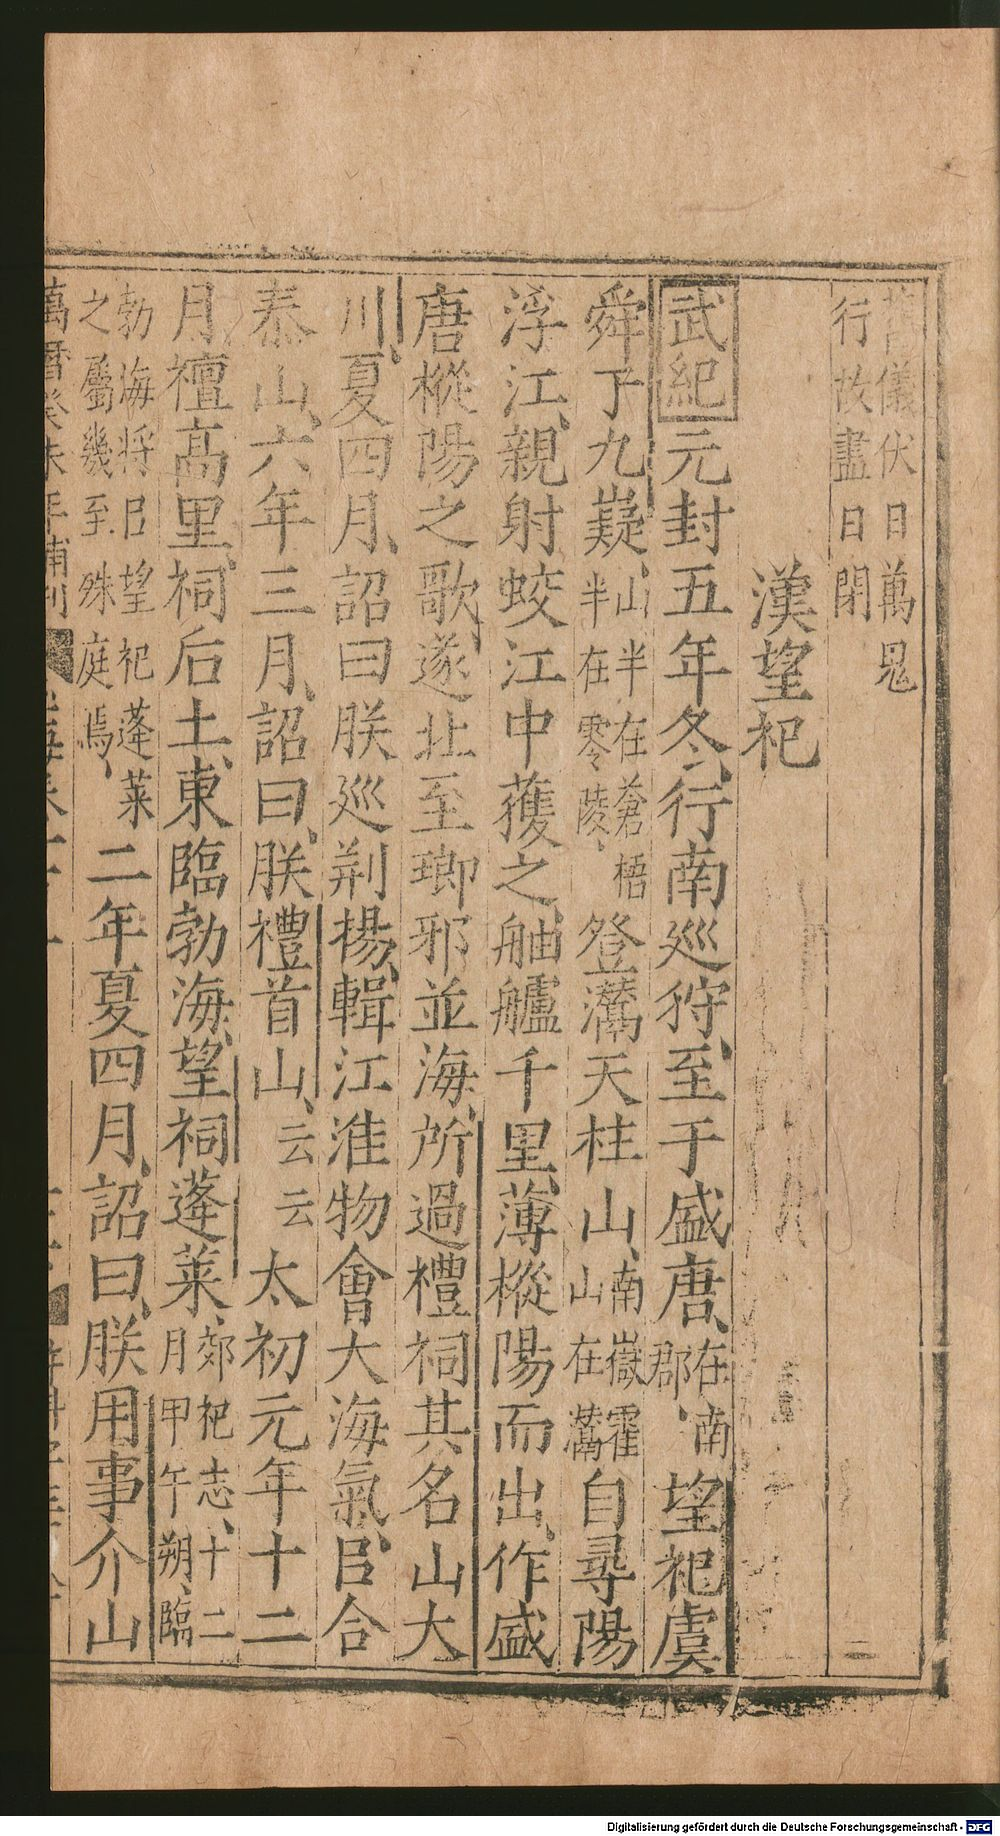 舊儀伏日萬鬼
行故盡日閉
漢望祀
武紀元封五年冬、行南巡狩、至于盛唐、在南郡、望祀虞
舜于九嶷、山半在蒼梧半在零陵、登灊天柱山、南嶽霍山在灊自尋陽
浮江、親射蛟江中、獲之、舳艫千里、薄樅陽而出、作盛
唐樅陽之歌、遂北至瑯邪並海、所過禮祠其名山大
川、夏四月、詔曰朕巡荆揚、輯江淮物會大海氣、㠯合
泰山、六年三月、詔曰、朕禮首山、云云太初元年十二
月禮高里、祠后土、東臨勃海、望祠蓬萊、郊祀志、十二月甲午朔、臨
勃海將㠯望祀蓬萊之屬幾至殊庭焉、二年夏四月、詔曰、朕用事介山
萬曆癸未年補刊
二
Digitalisierung gefördert durch die Deutsche Forschungsgemeinschaft - DFG